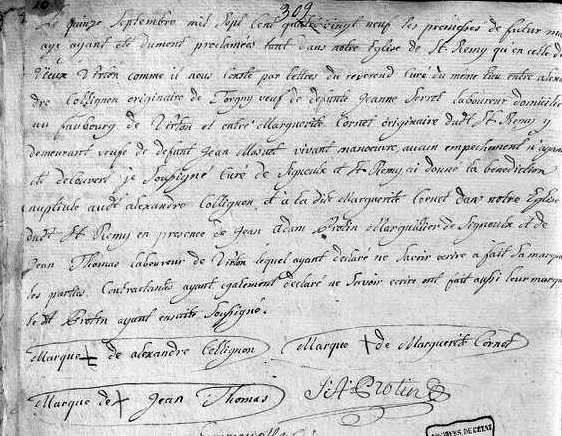 309
quinze Septembre mil Sept Cent quatre vingt neuf les premisses de futur ma
age ayant été dument proclamées tant dans notre Eglise de St Remy qu'en celle d
Vieux Virton comme il nous Conste par lettres du reverend Curé du meme lieu entre alexa
dre Collignon originaire de Torgny veuf de defunte Jeanne laboureur domicilié
au fauxbourg de Virton et entre Marguerite Cornet originaire dudt St Remy y
demeurant veuve de defunt Jean vivant manoeuvre aucun empechement n'ayant
eté decouvert je Soussigné Curé de Signeulx et St Remy ai donné la benediction
nuptiale audt alexandre Collignon et à la dite Marguerite Cornet dans notre Eglise
dudt St Remy en presence de Jean Adam Protin Marguillier de Signeulx et de
Jean Thomas laboureur de Virton lequel ayant declaré ne Savoir ecrire a fait Sa marque
les parties Contractantes ayant egalement declaré ne Savoir ecrire ont fait aussi leur marque
le dt Protin ayant ensuite Soussigné.
Marque + de alexandre Collignon Marque + de Marguerite Cornet
Marque de + Jean Thomas J A Protin
ARCHIVES DE L'ÉTAT